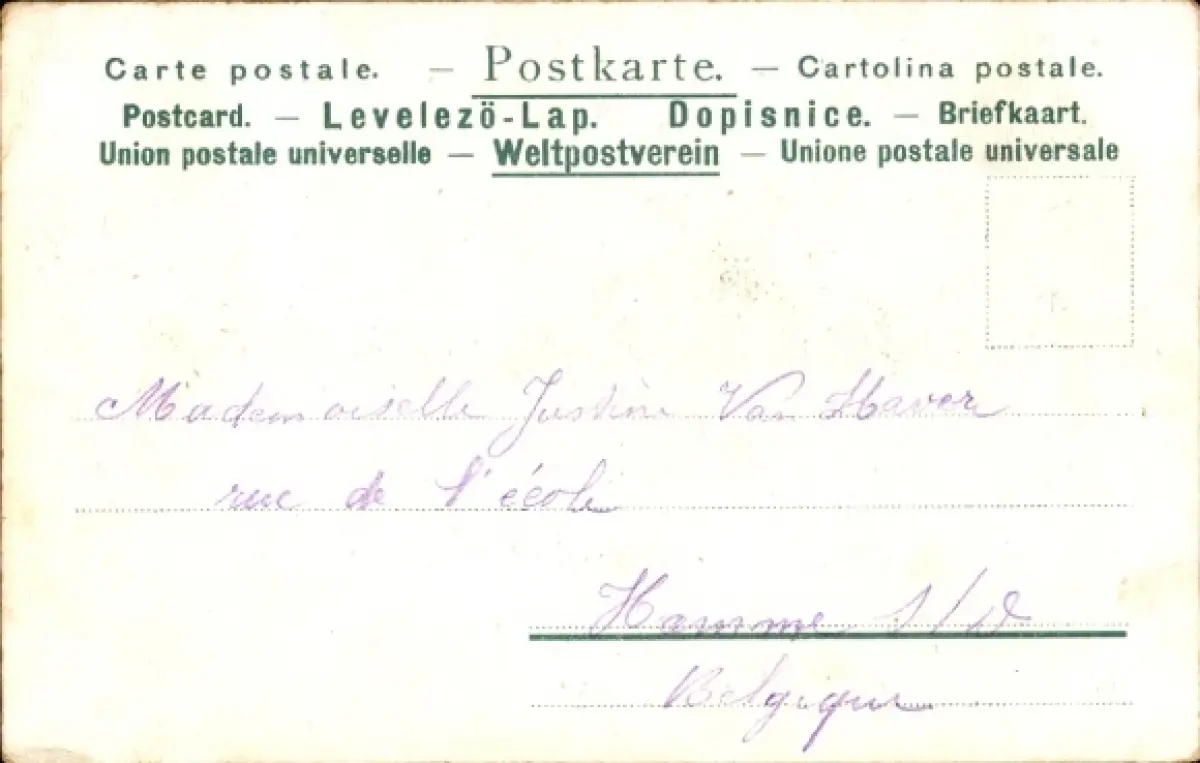 Carte postale. — Postkarte. — Cartolina postale.
Postcard. — Levelezö-Lap. Dopisnice. — Briefkaart.
Union postale universelle — Weltpostverein — Unione postale universale
Mademoiselle Justine Van Haver
rue de l'école
Hamme s/D
Belgique